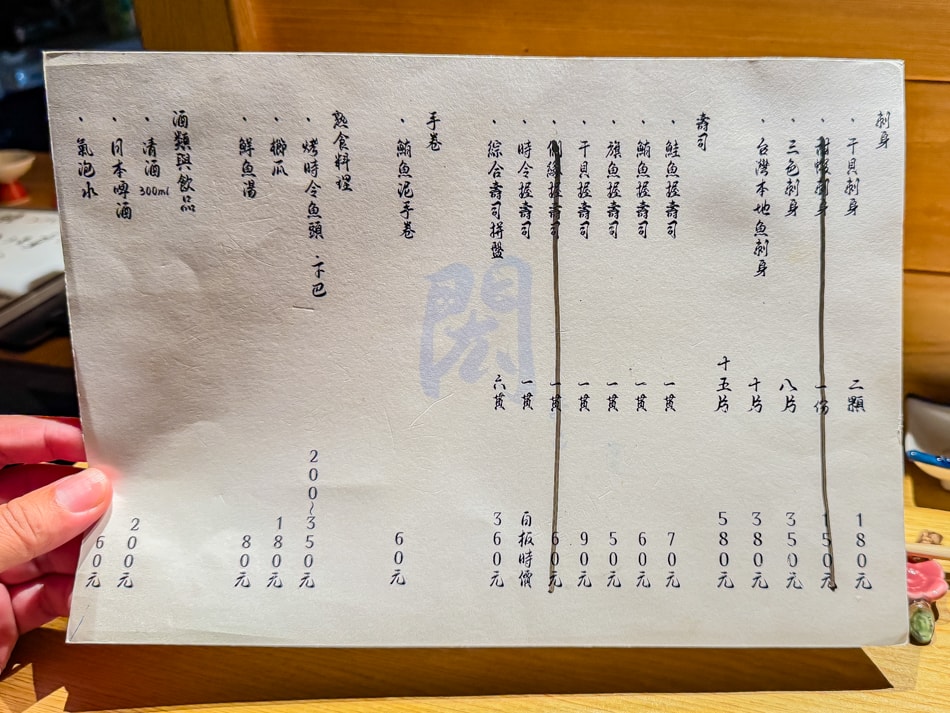 刺身
・干貝刺身 二顆 180元
・甜蝦刺身 一份 150元
・三色刺身 八片 350元
・台灣本地魚刺身 十片 380元
十五片 580元
壽司
・鮭魚握壽司 一貫 70元
・鮪魚握壽司 一貫 60元
・旗魚握壽司 一貫 50元
・干貝握壽司 一貫 90元
・側緣握壽司 一貫 60元
・時令握壽司 一貫 白板時價
・綜合壽司拼盤 六貫 360元
手卷
・鮪魚泥手卷 60元
熟食料理
・烤時令魚頭、下巴 200~350元
・櫛瓜 180元
・鮮魚湯 80元
酒類與飲品
・清酒 300ml
・日本啤酒 200元
・氣泡水 60元